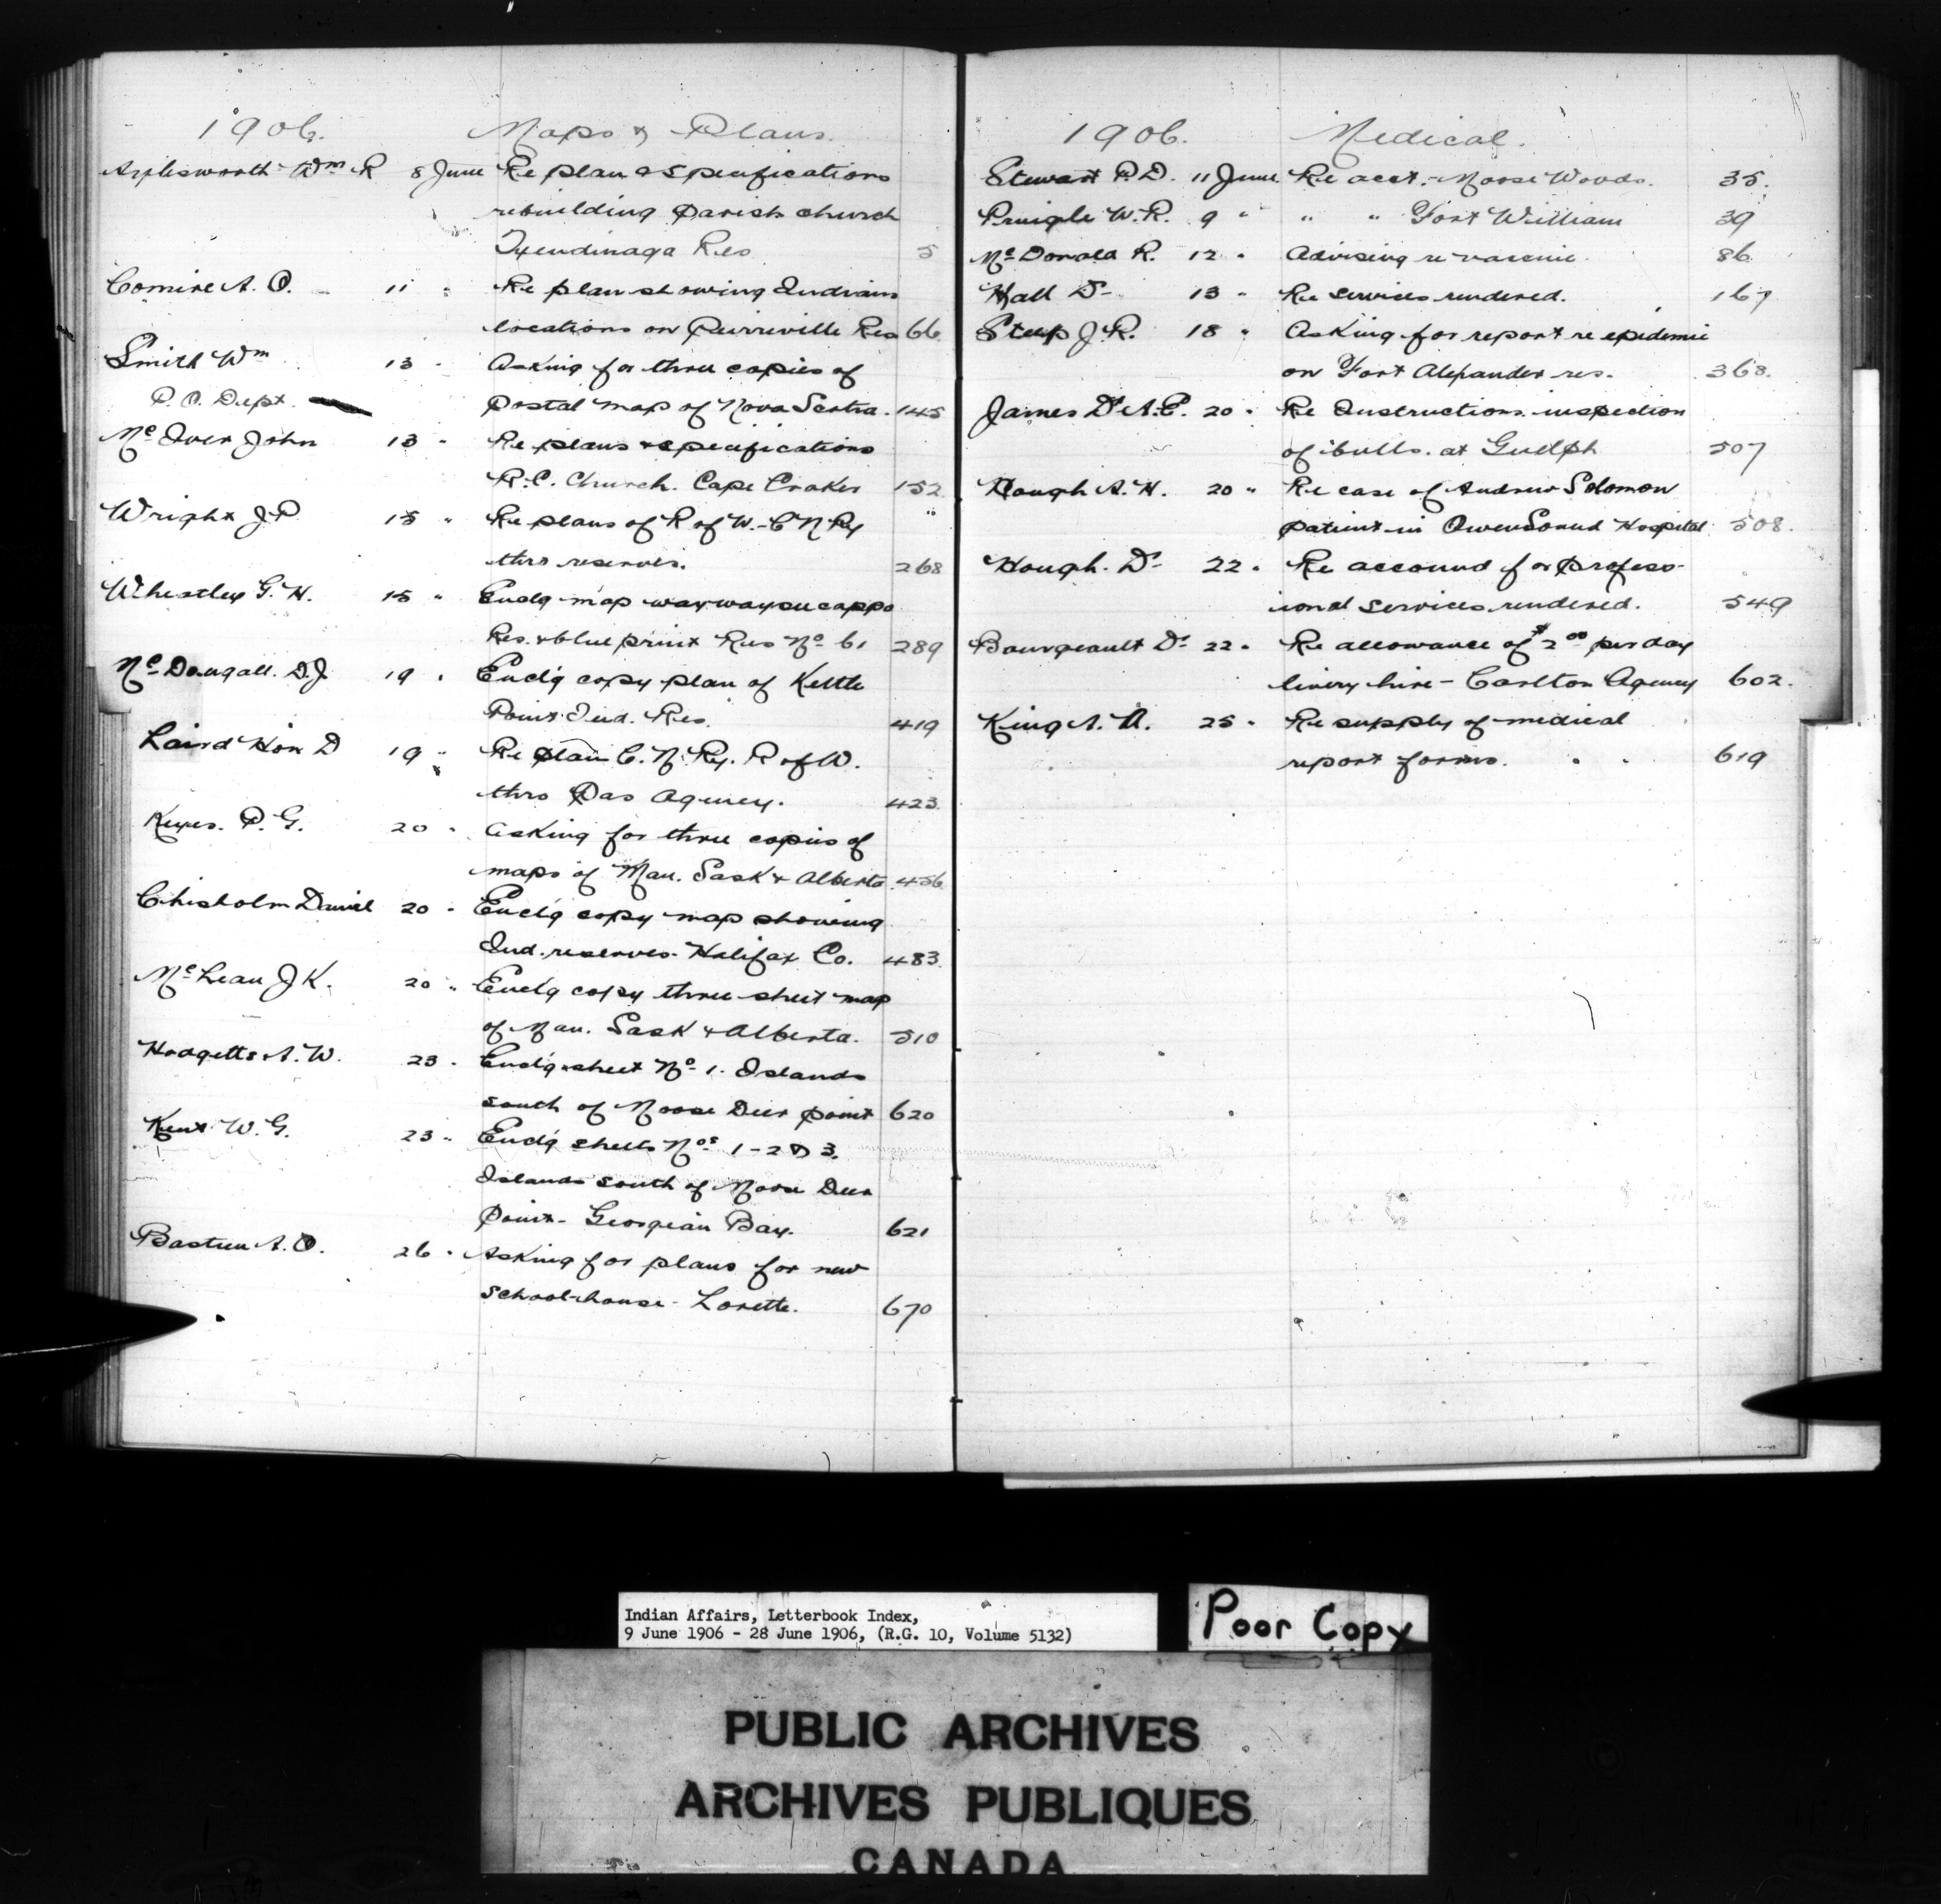 1906. Maps & Plans.
Aylesworth Wm R 8 June Re plan & specifications
rebuilding Parish church
Tyendinaga Res 5
Comire A. O. 11 " Re plan showing Indians
locations on Pierreville Res 66
Smith Wm 13 " Asking for three copies of
P. O. Dept. postal map of Nova Scotia. 145
McIver John 13 " Re plans & specifications
R.C. Church. Cape Croker 152
Wright J P 15 " Re plans of R of W. - C N Ry
thro reserves. 268
Wheatley G. H. 15 " Enclg map waywayseecappo
Res. & blue print Res No 61 289
McDougall. D. J. 19 " Enclg copy plan of Kettle
Point Ind. Res. 419
Laird Hon D 19 " Re plan C. N. Ry. R of W.
thro Pas Agency. 423
Keyes. P. G. 20 " Asking for three copies of
maps of Man. Sask & Alberta 456
Chisholm Daniel 20 " Enclg copy map showing
Ind. reserves. Halifax Co. 483
McLean J K. 20 " Enclg copy three sheet map
of Man. Sask & Alberta. 510
Hodgetts A. W. 23 " Enclg sheet No 1. Islands
south of Moose Deer point 620
Kent W. G. 23 " Enclg sheets Nos 1-2 & 3.
Islands south of Moose Deer
Point - Georgian Bay. 621
Bastien A. O. 26 " Asking for plans for new
School-house - Lorette. 670
1906. Medical.
Stewart P. D. 11 June Re acct. - Moose Woods. 35.
Pringle W. R. 9 " " " Fort William 39
McDonald R. 12 " Advising re vaccine. 86
Hall Dr 13 " Re services rendered. 167
Steep J. R. 18 " Asking for report re epidemic
on Fort Alexander res. 368.
James Dr A. E. 20 " Re Instructions inspection
of bulls. at Guelph 507
Hough A. H. 20 " Re case of Andrew Solomon
patient in Owen Sound Hospital 508.
Hough. Dr 22 " Re account for profess-
ional services rendered. 549
Bourgeault Dr 22 " Re allowance of $2.00 per day
livery hire - Carlton Agency 602.
King A. A. 25 " Re supply of medical
report forms. 619
Indian Affairs, Letterbook Index,
9 June 1906 - 28 June 1906, (R.G. 10, Volume 5132)
Poor Copy
PUBLIC ARCHIVES
ARCHIVES PUBLIQUES
CANADA